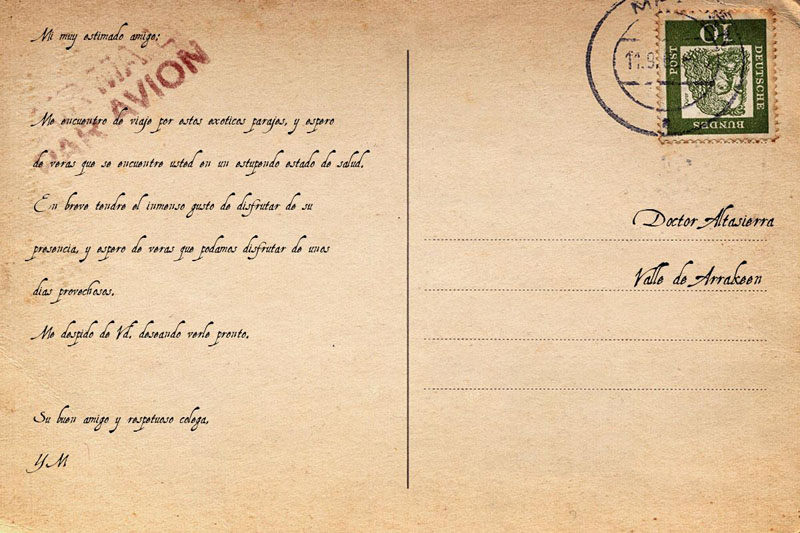 Mi muy estimado amigo:
AIR MAIL
PAR AVION
Me encuentro de viaje por estos exoticos parajes, y espero
de veras que se encuentre usted en un estupendo estado de salud.
En breve tendre el inmenso gusto de disfrutar de su
presencia, y espero de veras que podamos disfrutar de unos
dias provechosos.
Me despido de Vd. deseando verle pronto.
Su buen amigo y respetuoso colega,
YM
11.9.
10
POST
DEUTSCHE
BUNDES
Doctor Altasierra
Valle de Arrakeen